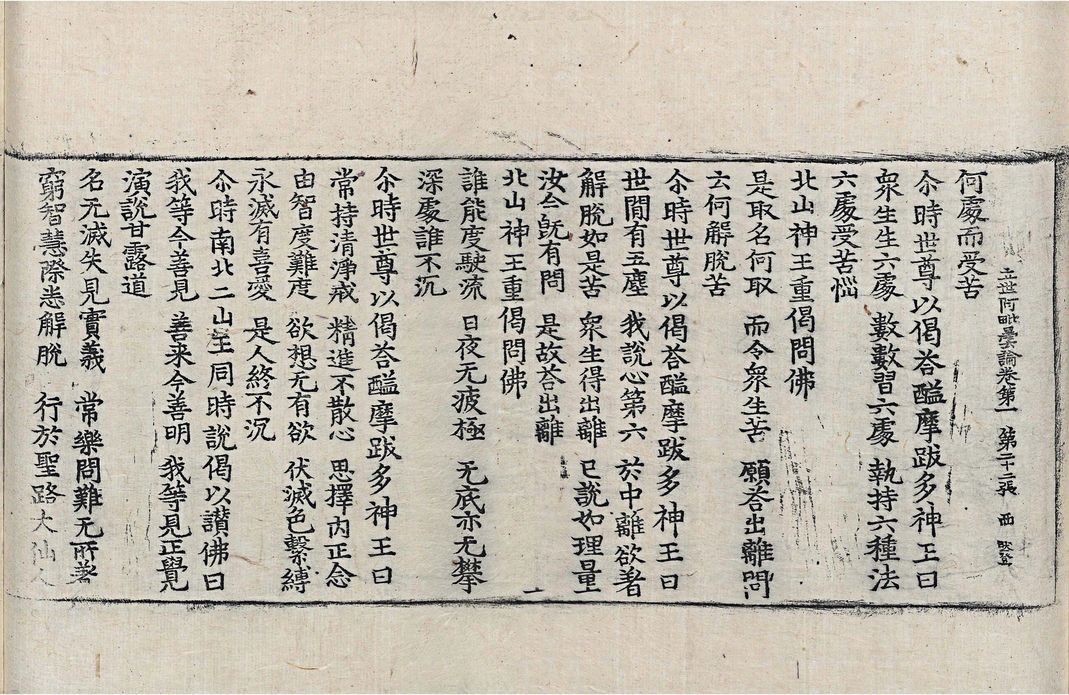 立世阿毗曇論卷第一　第二十二張　西
何處而受苦
尒時世尊以偈荅醯摩跋多神王曰
衆生生六處　數數習六處　執持六種法
六處受苦惱
北山神王重偈問佛
是取名何取　而令衆生苦　願荅出離問
云何解脫苦
尒時世尊以偈荅醯摩跋多神王曰
世閒有五塵　我說心第六　於中離欲著
解脫如是苦　衆生得出離　已說如理量
汝今旣有問　是故荅出離
北山神王重偈問佛
誰能度駛流　日夜无疲極　无底亦无攀
深處誰不沉
尒時世尊以偈荅醯摩跋多神王曰
常持清淨戒　精進不散心　思擇内正念
由智度難度　欲想无有欲　伏滅色繫縛
永滅有喜愛　是人終不沉
尒時南北二山王同時說偈以讚佛曰
我等今善見　善来今善明　我等見正覺
演說甘露道
名无滅失見實義　常樂問難无所著
窮智慧際悉解脫　行於聖路大仙人